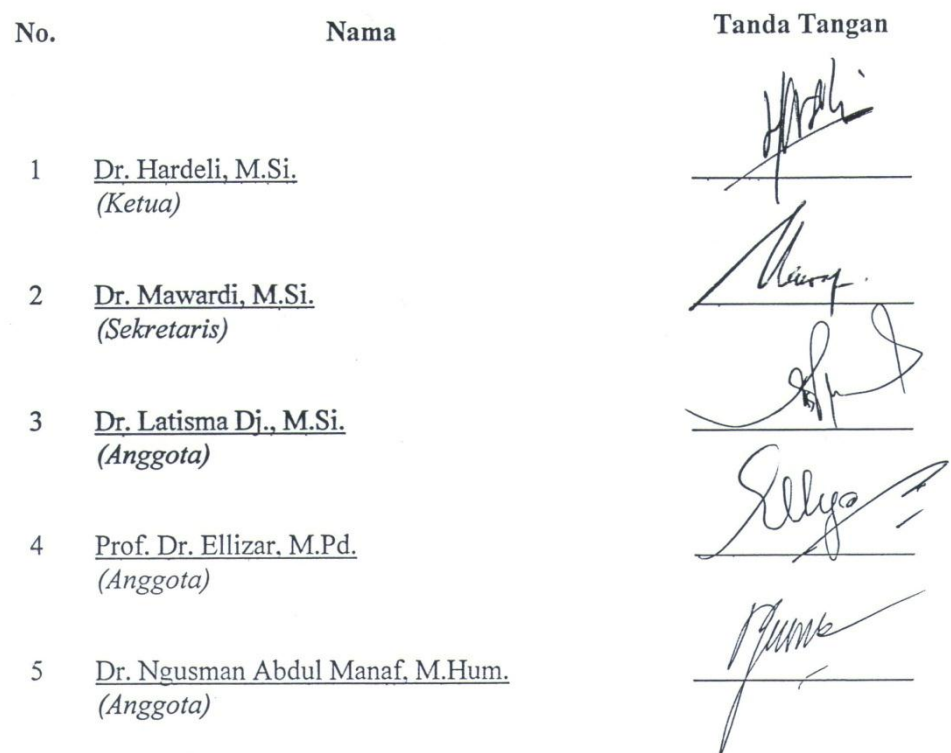 No. Nama Tanda Tangan
1 Dr. Hardeli, M.Si.
(Ketua)
2 Dr. Mawardi, M.Si.
(Sekretaris)
3 Dr. Latisma Dj., M.Si.
(Anggota)
4 Prof. Dr. Ellizar, M.Pd.
(Anggota)
5 Dr. Ngusman Abdul Manaf, M.Hum.
(Anggota)